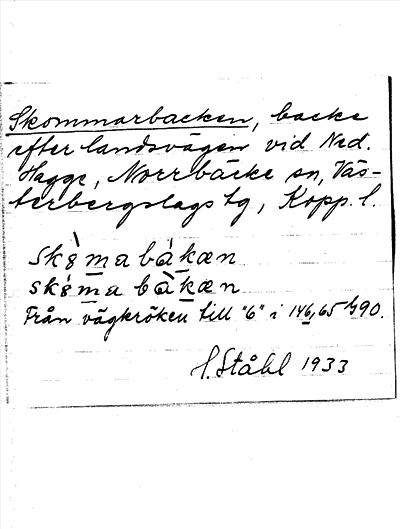 Skommarbacken, backe
efter landsvägen vid Ned.
Hagge, Norrbäcke sn, Väs-
terbergslags tg, Kopp. l.
skòmabàkæn
skòmabàkæn
Från vägkröken till "6" i 146,65 /90.
H. Ståhl 1933